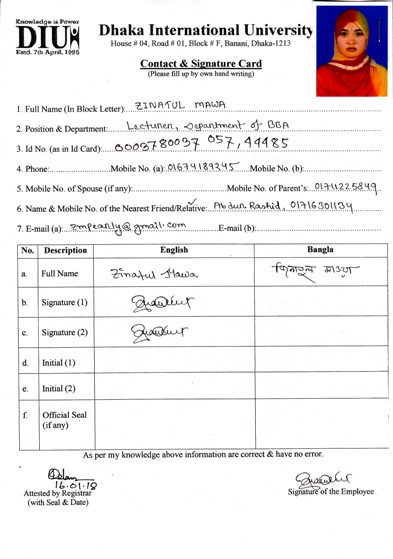 Knowledge is Power
DIU
Estd. 7th April, 1995
Dhaka International University
House # 04, Road # 01, Block # F, Banani, Dhaka-1213
Contact & Signature Card
(Please fill up by own hand writing)
1. Full Name (In Block Letter): ZINATUL MAWA
2. Position & Department: Lecturer, Department of BBA
3. Id No. (as in Id Card): 0003780037 057, 44485
4. Phone: Mobile No. (a): 01674189245 Mobile No. (b):
5. Mobile No. of Spouse (if any): Mobile No. of Parent's: 01741225849
6. Name & Mobile No. of the Nearest Friend/Relative: Abdur Rashid, 01716301134
7. E-mail (a): zmpearly@gmail.com E-mail (b):
No. Description English Bangla
a. Full Name Zinatul Mawa জিনাতুল মাওয়া
b. Signature (1)
c. Signature (2)
d. Initial (1)
e. Initial (2)
f. Official Seal
(if any)
As per my knowledge above information are correct & have no error.
16.01.18
Attested by Registrar
(with Seal & Date)
Signature of the Employee